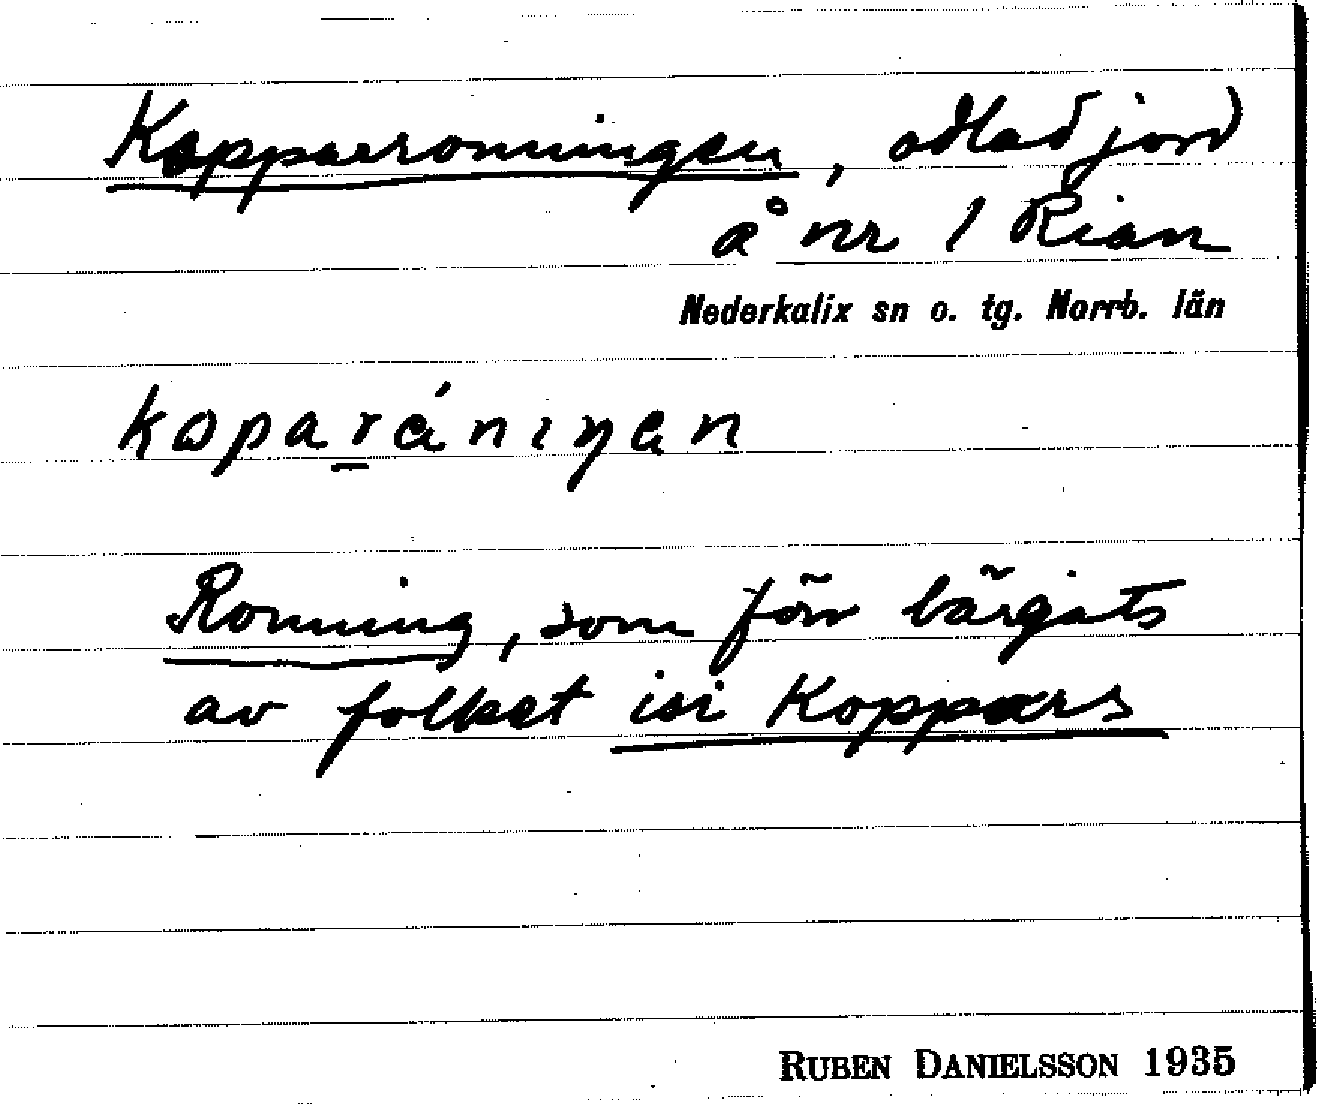 Kopparronningen, odlad jord
å nr 1 Rian
Nederkalix sn o. tg. Norrb. län
kopa rániŋen
Ronning, som förr bärgats
av folket isi Koppars
RUBEN DANIELSSON 1935